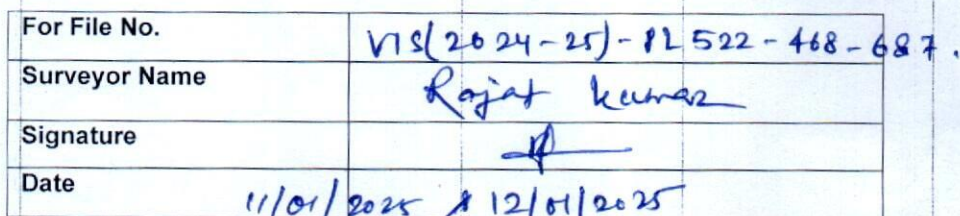 For File No. VIS(2024-25)-PL522-468-687.
Surveyor Name Rajat Kumar
Signature
Date 11/01/2025 & 12/01/2025